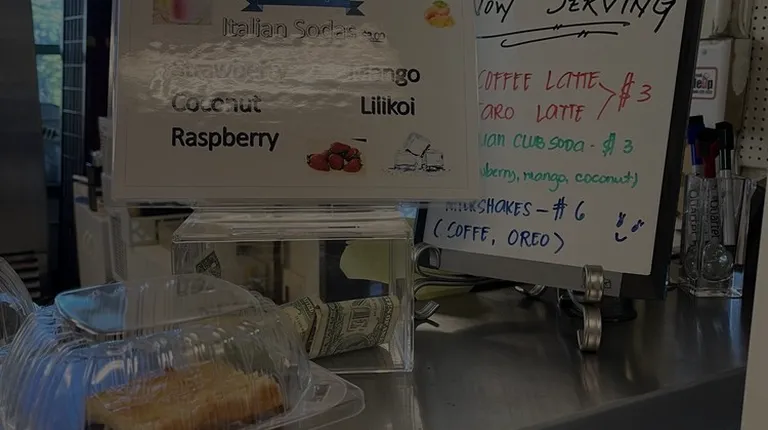 Italian Sodas
Strawberry Mango
Coconut Lilikoi
Raspberry
NOW SERVING
COFFEE LATTE
TARO LATTE > $3
IAN CLUB SODA - $3
wberry, mango, coconut)
MILKSHAKES - $6
(COFFE, OREO)